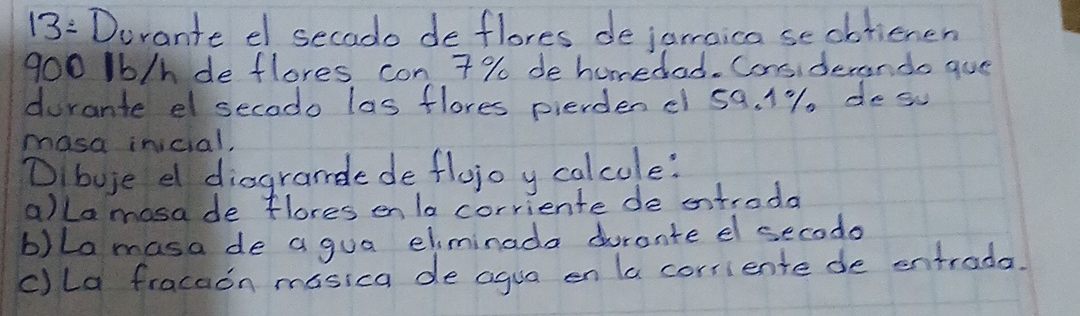 13= Durante el secado de flores de jamaica se obtienen
900 lb/h de flores con 7% de humedad. Considerando que
durante el secado las flores pierden el 59.1% de su
masa inicial.
Dibuje el diagramde de flujo y calcule:
a) La masa de flores en la corriente de entrada
b) La masa de agua eliminada durante el secado
c) La fracción másica de agua en la corriente de entrada.